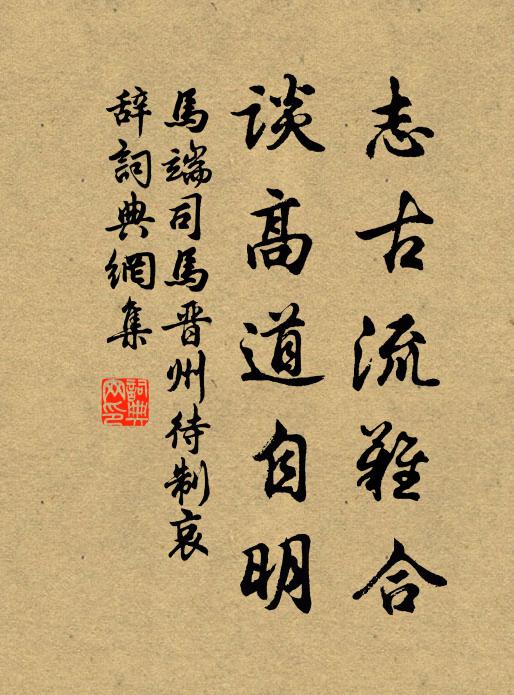 志古流難合
談高道自明
馬端司馬晉州待制哀
辞詞典網集
詞典